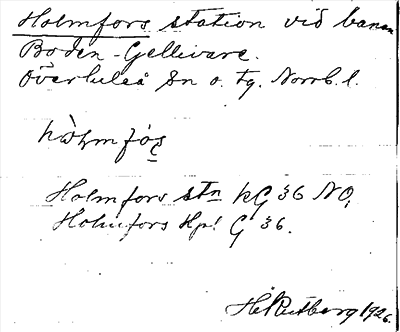 Holmfors station vid banan
Boden-Gellivare.
Överluleå Sn o. tg. Norrb. l.
hòl̨m fór̨s
Holmfors stn HG 36 NO,
Holmfors Hpl G 36.
1926.